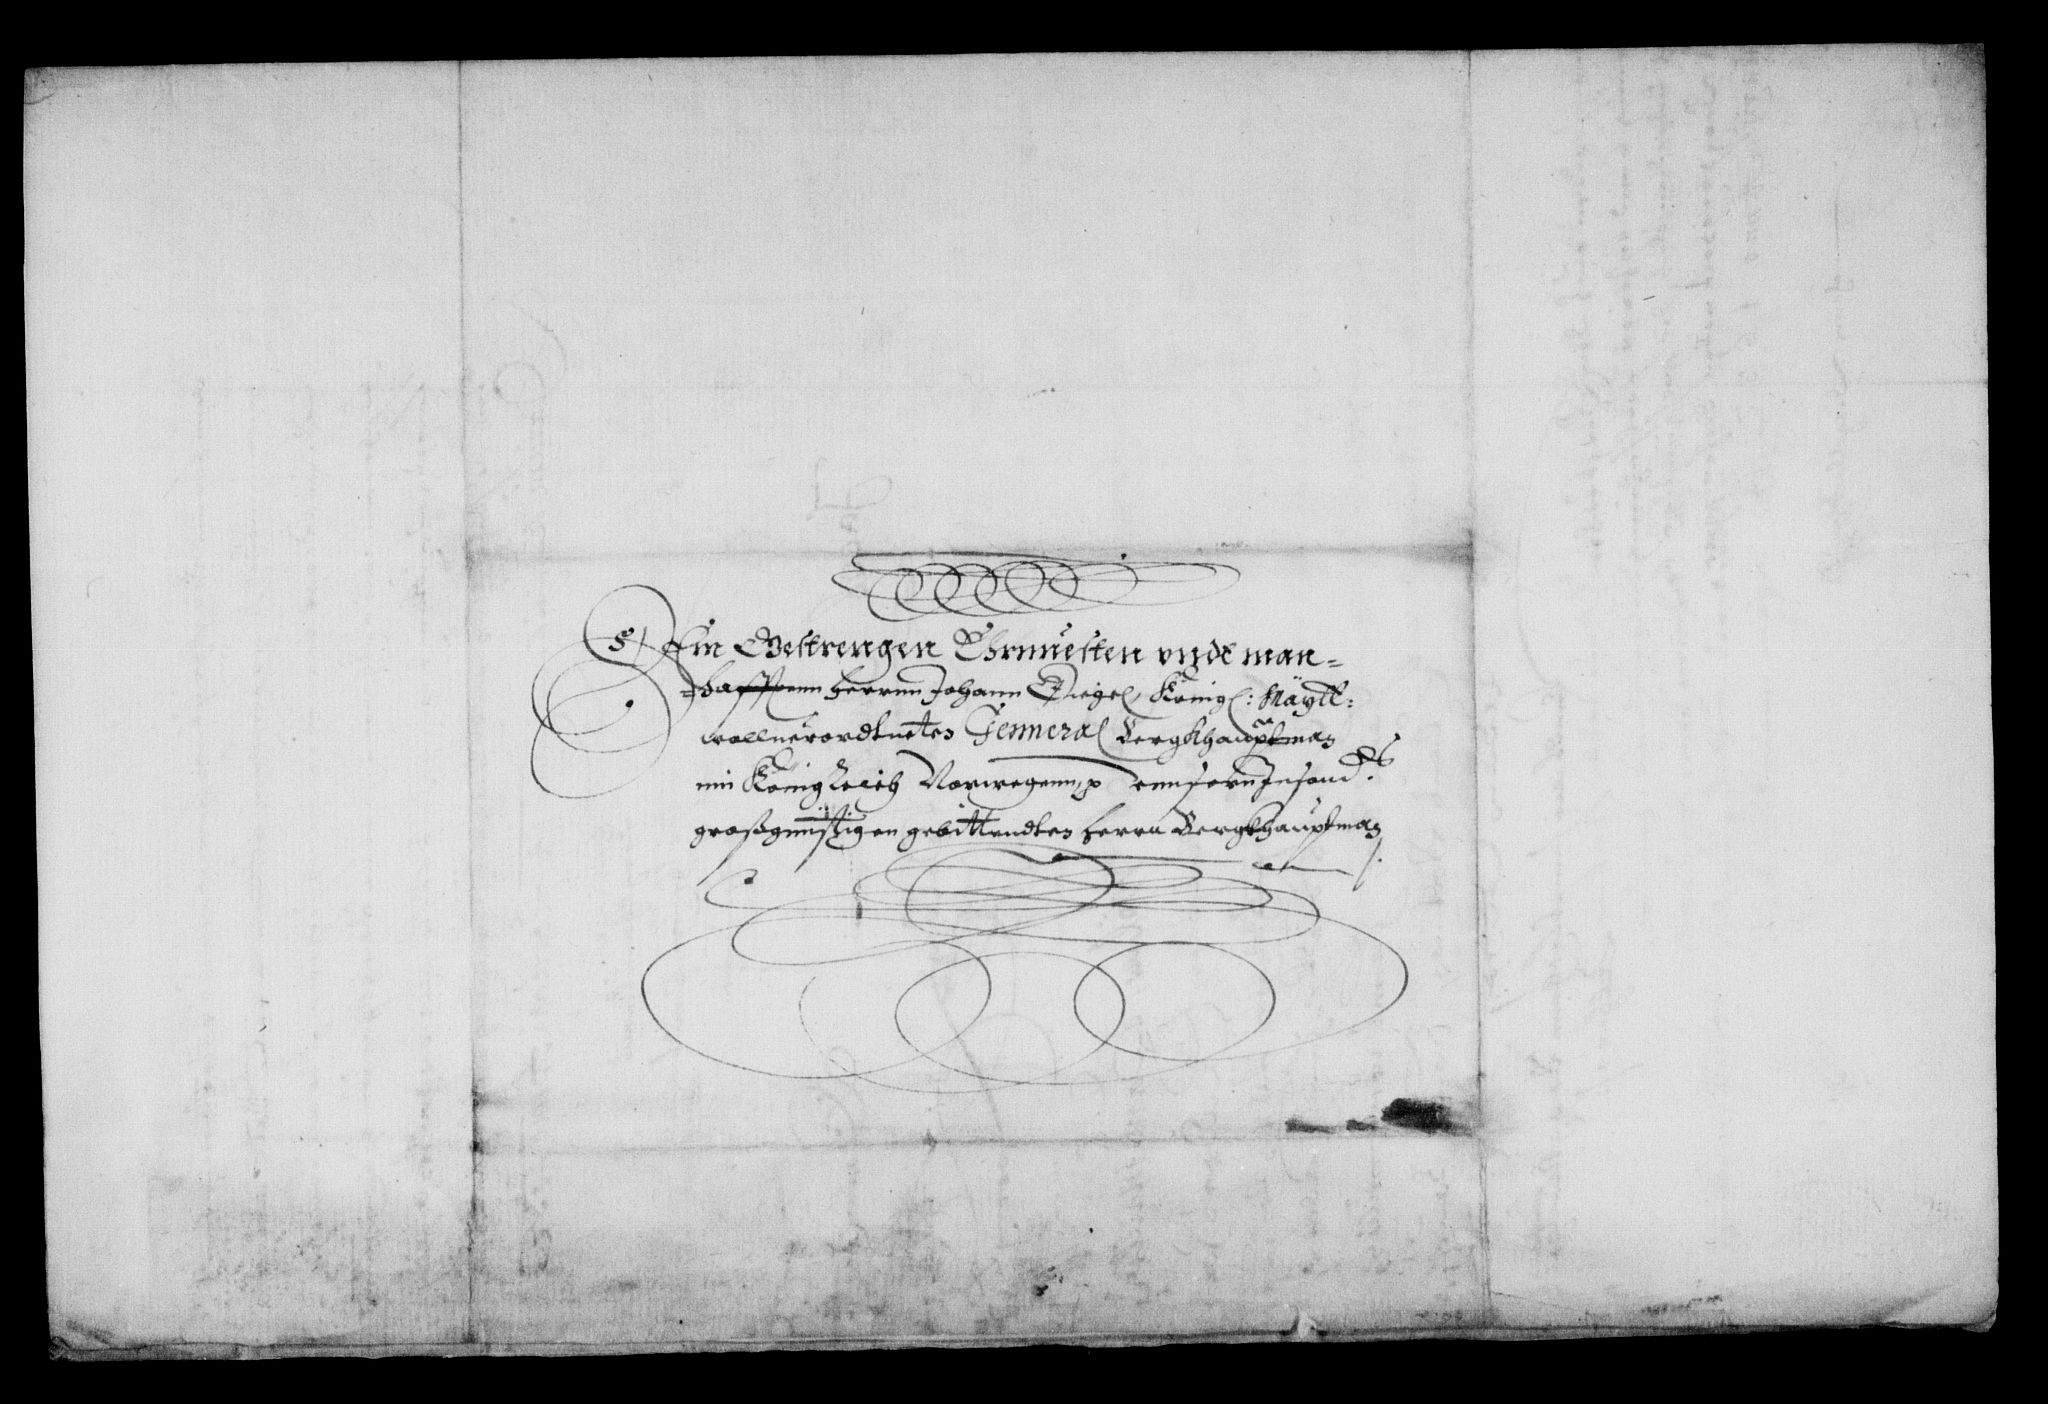 Ein Gestrengen Ehrnuesten vnde man=
=hafftenn herrnn Johann Ziegel, Königl: Mäytt:
wollnerordtneten Jenneral Bergkhauptman
im König Reich Norwegenn, p
großgünstigen gebittendten herrn Bergkhauptman